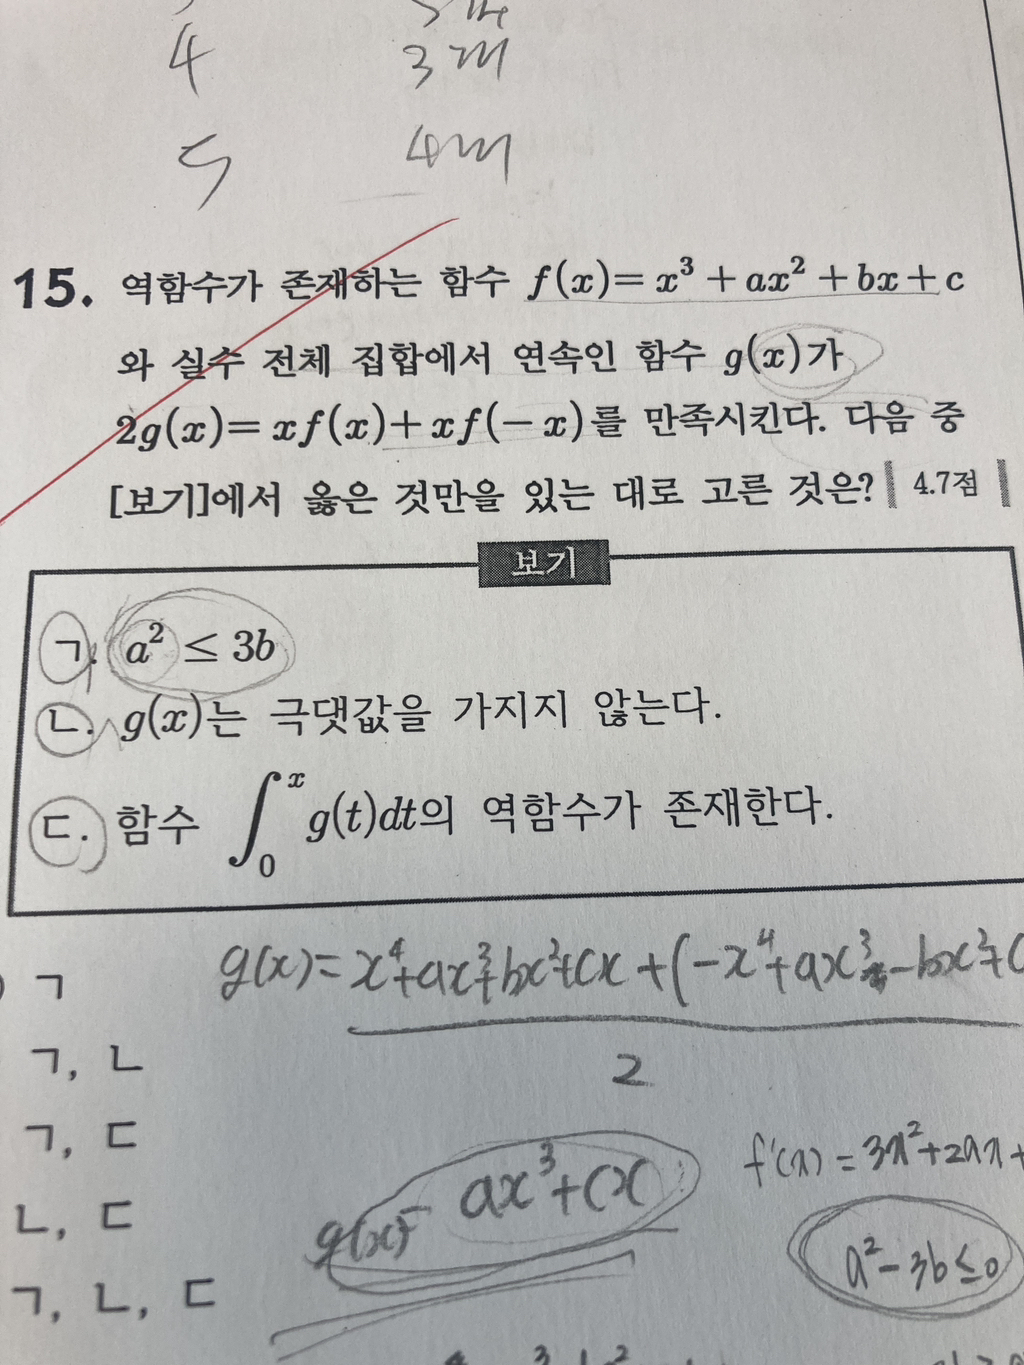 4 3개
5 4개
15. 역함수가 존재하는 함수 f(x)=x³+ax²+bx+c
와 실수 전체 집합에서 연속인 함수 g(x)가
2g(x)=xf(x)+xf(−x)를 만족시킨다. 다음 중
[보기]에서 옳은 것만을 있는 대로 고른 것은? 4.7점
보기
ㄱ. a² ≤ 3b
ㄴ. g(x)는 극댓값을 가지지 않는다.
ㄷ. 함수 ∫₀ˣ g(t)dt의 역함수가 존재한다.
g(x)= x⁴+ax³+bx²+cx+(−x⁴+ax³−bx²+c
2
ㄱ
ㄱ, ㄴ
ㄱ, ㄷ
ㄴ, ㄷ
ㄱ, ㄴ, ㄷ
g(x)= ax³+cx
f'(x)=3x²+2ax+
a²−3b≤0